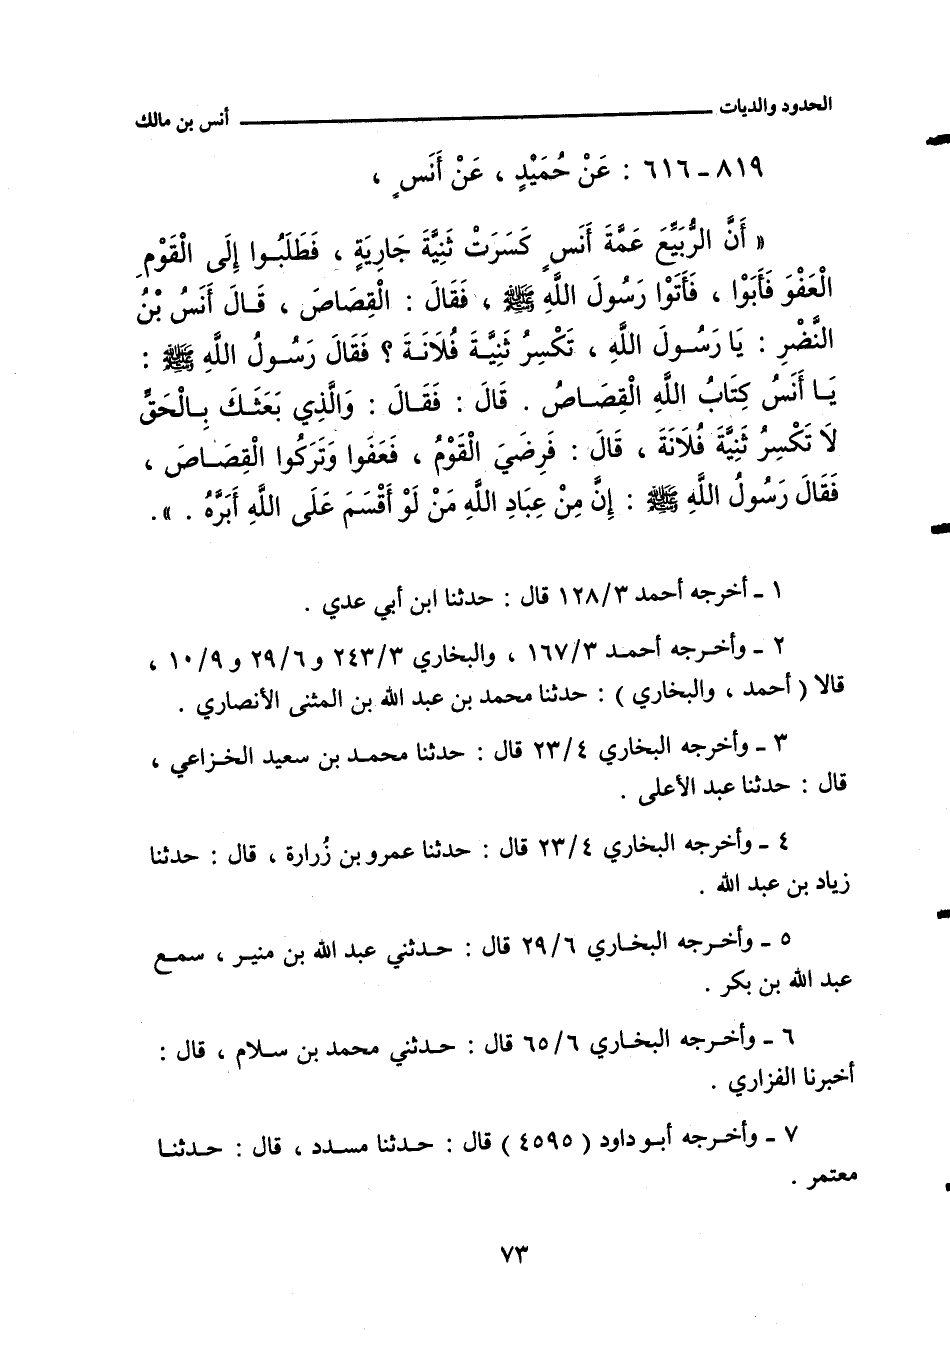 الحدود والديات ـــــــــ أنس بن مالك
٨١٩ ـ ٦١٦ : عَنْ حُمَيْدٍ ، عَنْ أَنَسٍ ،
« أَنَّ الرُّبَيِّعَ عَمَّةَ أَنَسٍ كَسَرَتْ ثَنِيَّةَ جَارِيَةٍ ، فَطَلَبُوا إِلَى الْقَوْمِ
الْعَفْوَ فَأَبَوْا ، فَأَتَوْا رَسُولَ اللَّهِ ﷺ ، فَقَالَ : الْقِصَاصَ ، قَالَ أَنَسُ بْنُ
النَّضْرِ : يَا رَسُولَ اللَّهِ ، تَكْسِرُ ثَنِيَّةَ فُلَانَةَ ؟ فَقَالَ رَسُولُ اللَّهِ ﷺ :
يَا أَنَسُ كِتَابُ اللَّهِ الْقِصَاصُ . قَالَ : فَقَالَ : وَالَّذِي بَعَثَكَ بِالْحَقِّ
لَا تَكْسِرُ ثَنِيَّةَ فُلَانَةَ ، قَالَ : فَرِضَيَ الْقَوْمُ ، فَعَفَوا وَتَرَكُوا الْقِصَاصَ ،
فَقَالَ رَسُولُ اللَّهِ ﷺ : إِنَّ مِنْ عِبَادِ اللَّهِ مَنْ لَوْ أَقْسَمَ عَلَى اللَّهِ أَبَرَّهُ . » .
١ ـ أخرجه أحمد ١٢٨/٣ قال : حدثنا ابن أبي عدي .
٢ ـ وأخرجه أحمد ١٦٧/٣ ، والبخاري ٢٤٣/٣ و٢٩/٦ و١٠/٩ ،
قالا ( أحمد ، والبخاري ) : حدثنا محمد بن عبد الله بن المثنى الأنصاري .
٣ ـ وأخرجه البخاري ٢٣/٤ قال : حدثنا محمد بن سعيد الخزاعي ،
قال : حدثنا عبد الأعلى .
٤ ـ وأخرجه البخاري ٢٣/٤ قال : حدثنا عمرو بن زُرارة ، قال : حدثنا
زياد بن عبد الله .
٥ ـ وأخرجه البخاري ٢٩/٦ قال : حدثني عبد الله بن منير ، سمع
عبد الله بن بكر .
٦ ـ وأخرجه البخاري ٦٥/٦ قال : حدثني محمد بن سلام ، قال :
أخبرنا الفزاري .
٧ ـ وأخرجه أبو داود ( ٤٥٩٥ ) قال : حدثنا مسدد ، قال : حدثنا
معتمر .
٧٣